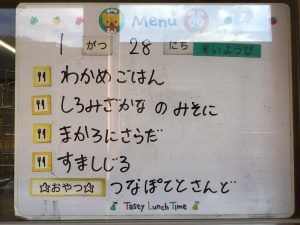 Menu
1 がつ 28 にち すいようび
わかめごはん
しろみさかな の みそに
まかろにさらだ
すましじる
☆おやつ☆ つなぽてとさんど
Tasty Lunch Time